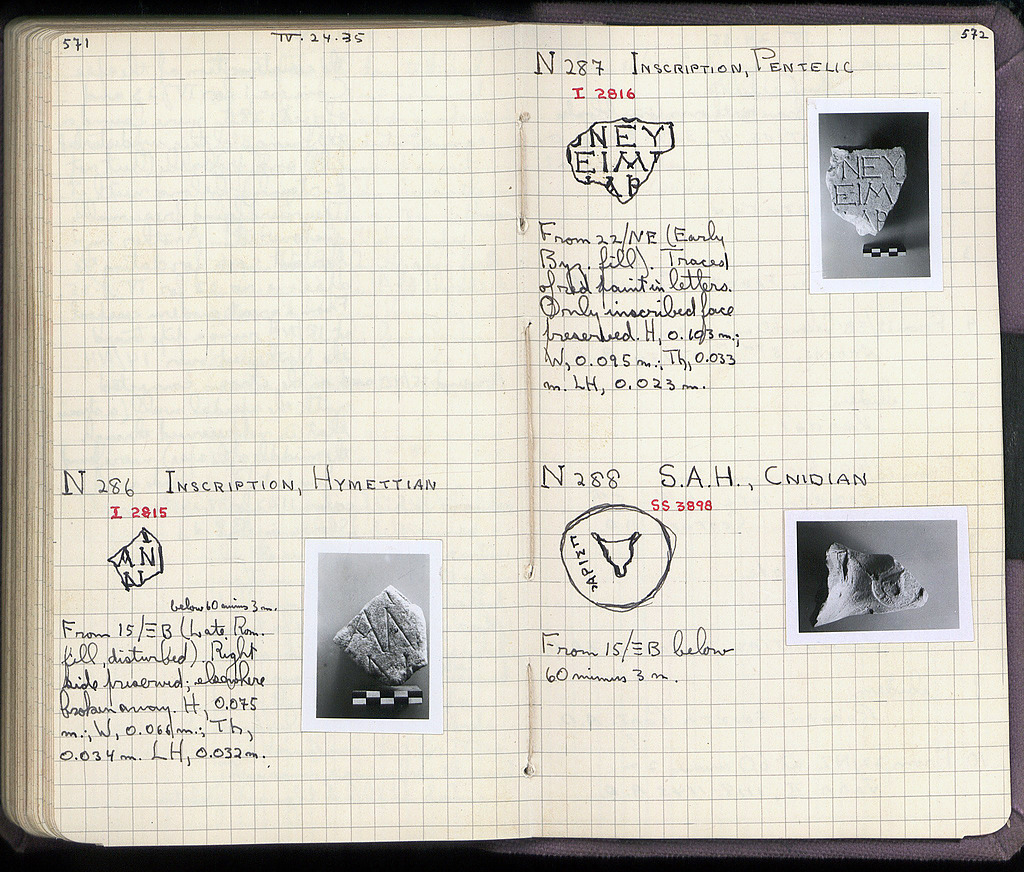 571
IV. 24. 35
N 286 INSCRIPTION, HYMETTIAN
I 2815
I
AN
N
below 60 minus 3 m.
From 15/ΞB (Late Rom.
fill, disturbed). Right
side preserved; elsewhere
broken away. H, 0.075
m.; W, 0.066 m.; Th,
0.034 m. LH, 0.032 m.
572
N 287 INSCRIPTION, PENTELIC
I 2816
NEY
EIM
AP
NEY
EIM
From 22/NE (Early
Byz. fill). Traces
of red paint in letters.
Only inscribed face
preserved. H, 0.103 m.;
W, 0.095 m.; Th, 0.033
m. LH, 0.023 m.
N 288 S.A.H., CNIDIAN
SS 3898
From 15/ΞB below
60 minus 3 m.